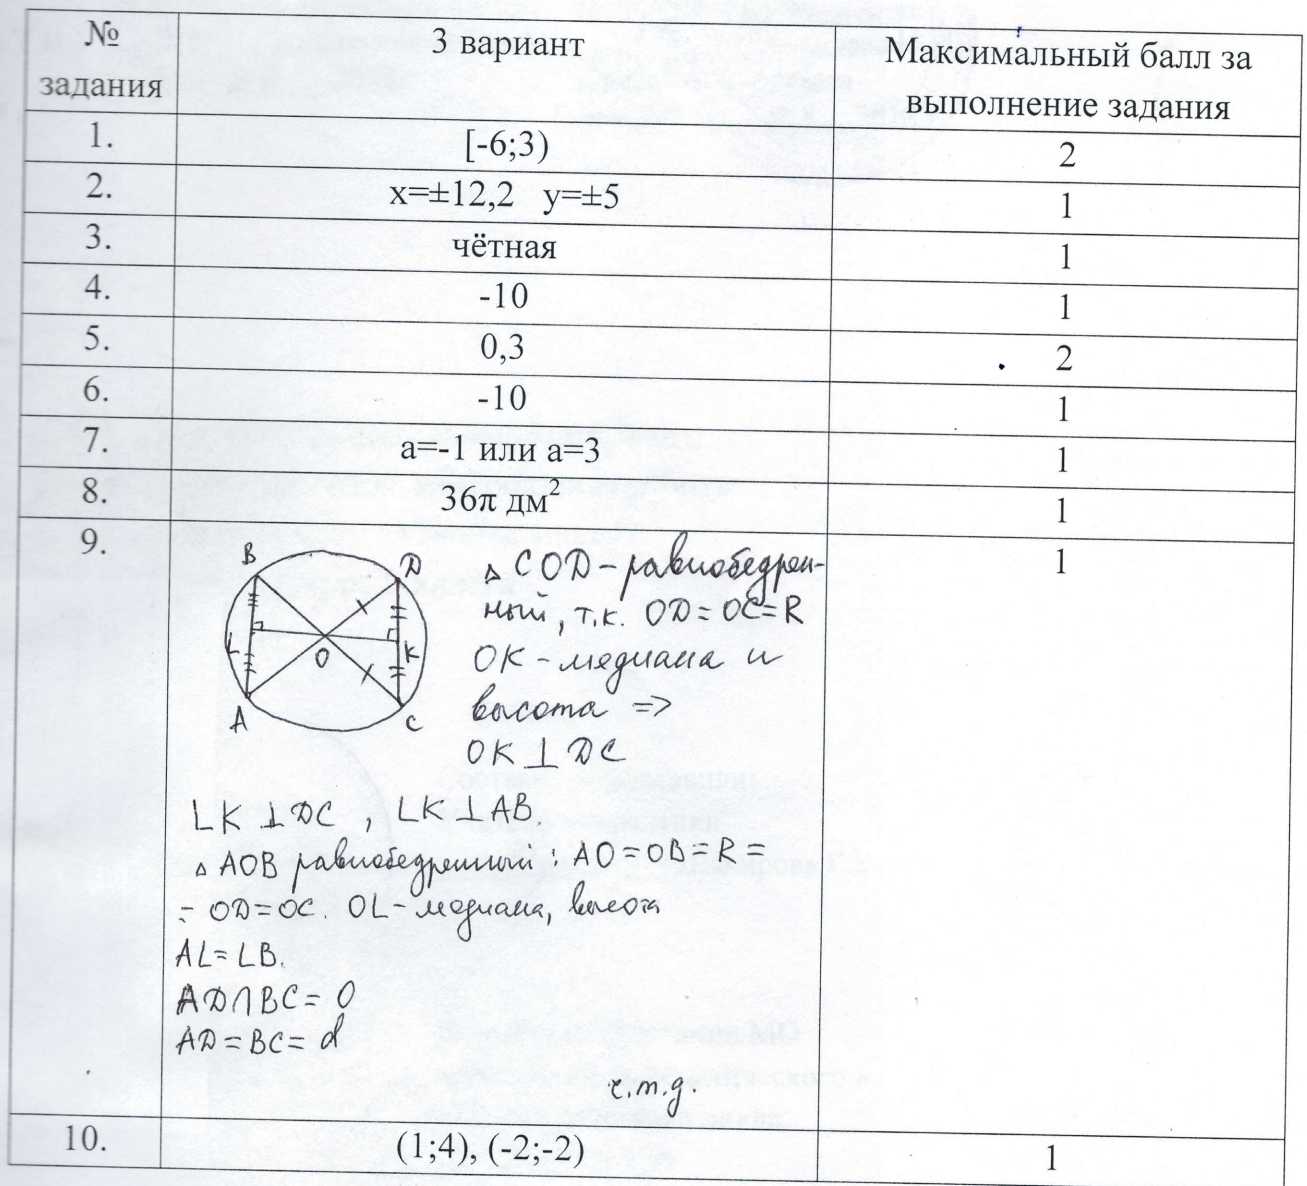 № задания 3 вариант Максимальный балл за выполнение задания
1. [-6;3) 2
2. x=±12,2 y=±5 1
3. чётная 1
4. -10 1
5. 0,3 2
6. -10 1
7. a=-1 или a=3 1
8. 36π дм² 1
9. 1
B D
L O K
A C
△ COD - равнобедрен-
ный, т.к. OD = OC = R
OK - медиана и
высота =>
OK ⊥ DC
LK ⊥ DC , LK ⊥ AB
△ AOB равнобедренный: AO = OB = R =
= OD = OC. OL - медиана, высота
AL = LB.
AD ∩ BC = O
AD = BC = d
ч.т.д.
10. (1;4), (-2;-2) 1